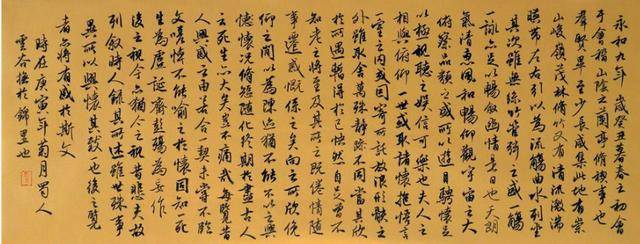 永和九年歲癸丑暮春之初會
于會稽山陰之蘭亭脩稧事也
群賢畢至少長咸集此地有崇
山峻嶺茂林脩竹又有清流激湍
映帶左右引以為流觴曲水列坐
其次雖無絲竹管弦之盛一觴
一詠亦足以暢敘幽情是日也天朗
氣清惠風和暢仰觀宇宙之大
俯察品類之盛所以遊目騁懷足
以極視聽之娛信可樂也夫人之
相與俯仰一世或取諸懷抱悟言
一室之內或因寄所託放浪形骸之
外雖取舍萬殊靜躁不同當其欣
於所遇暫得於己快然自足曾不
知老之將至及其所之既倦情隨
事遷感慨係之矣向之所欣俛
仰之間以為陳迹猶不能不以之興
懷況脩短隨化終期於盡古人
云死生亦大矣豈不痛哉每覽昔
人興感之由若合一契未嘗不臨
文嗟悼不能喻之於懷固知一死
生為虛誕齊彭殤為妄作
後之視今亦猶今之視昔悲夫故
列敘時人錄其所述雖世殊事
異所以興懷其致一也後之覽
者亦將有感於斯文
時在庚寅年菊月蜀人
雲谷撫於錦里也